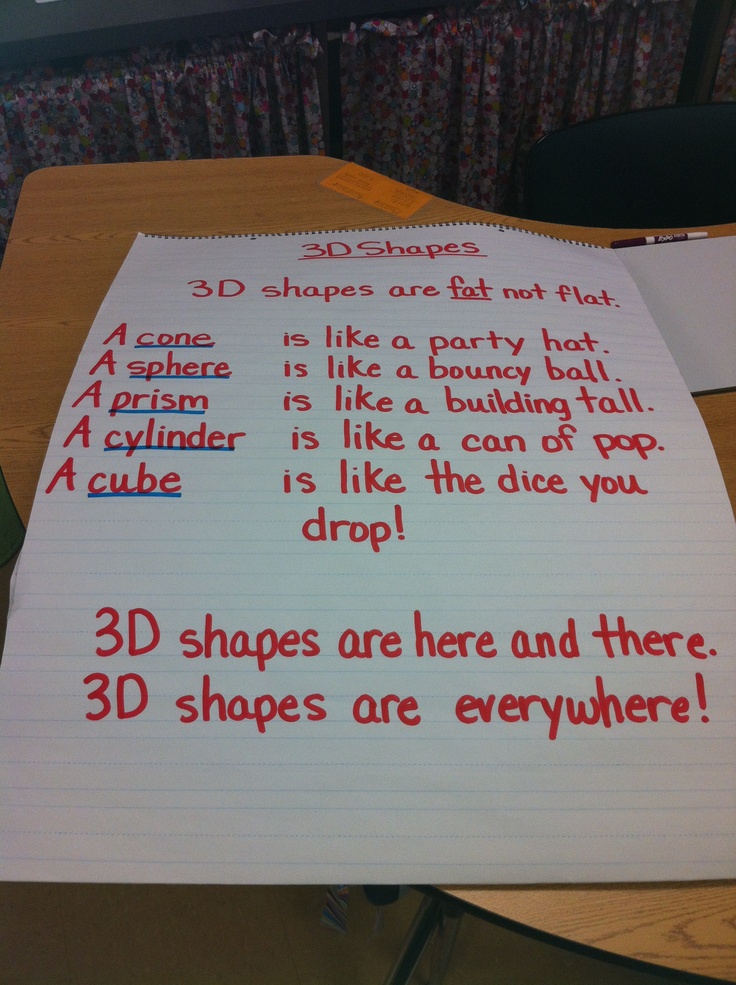 3D Shapes
3D shapes are fat not flat.
A cone is like a party hat.
A sphere is like a bouncy ball.
A prism is like a building tall.
A cylinder is like a can of pop.
A cube is like the dice you
drop!
3D shapes are here and there.
3D shapes are everywhere!
EXPO